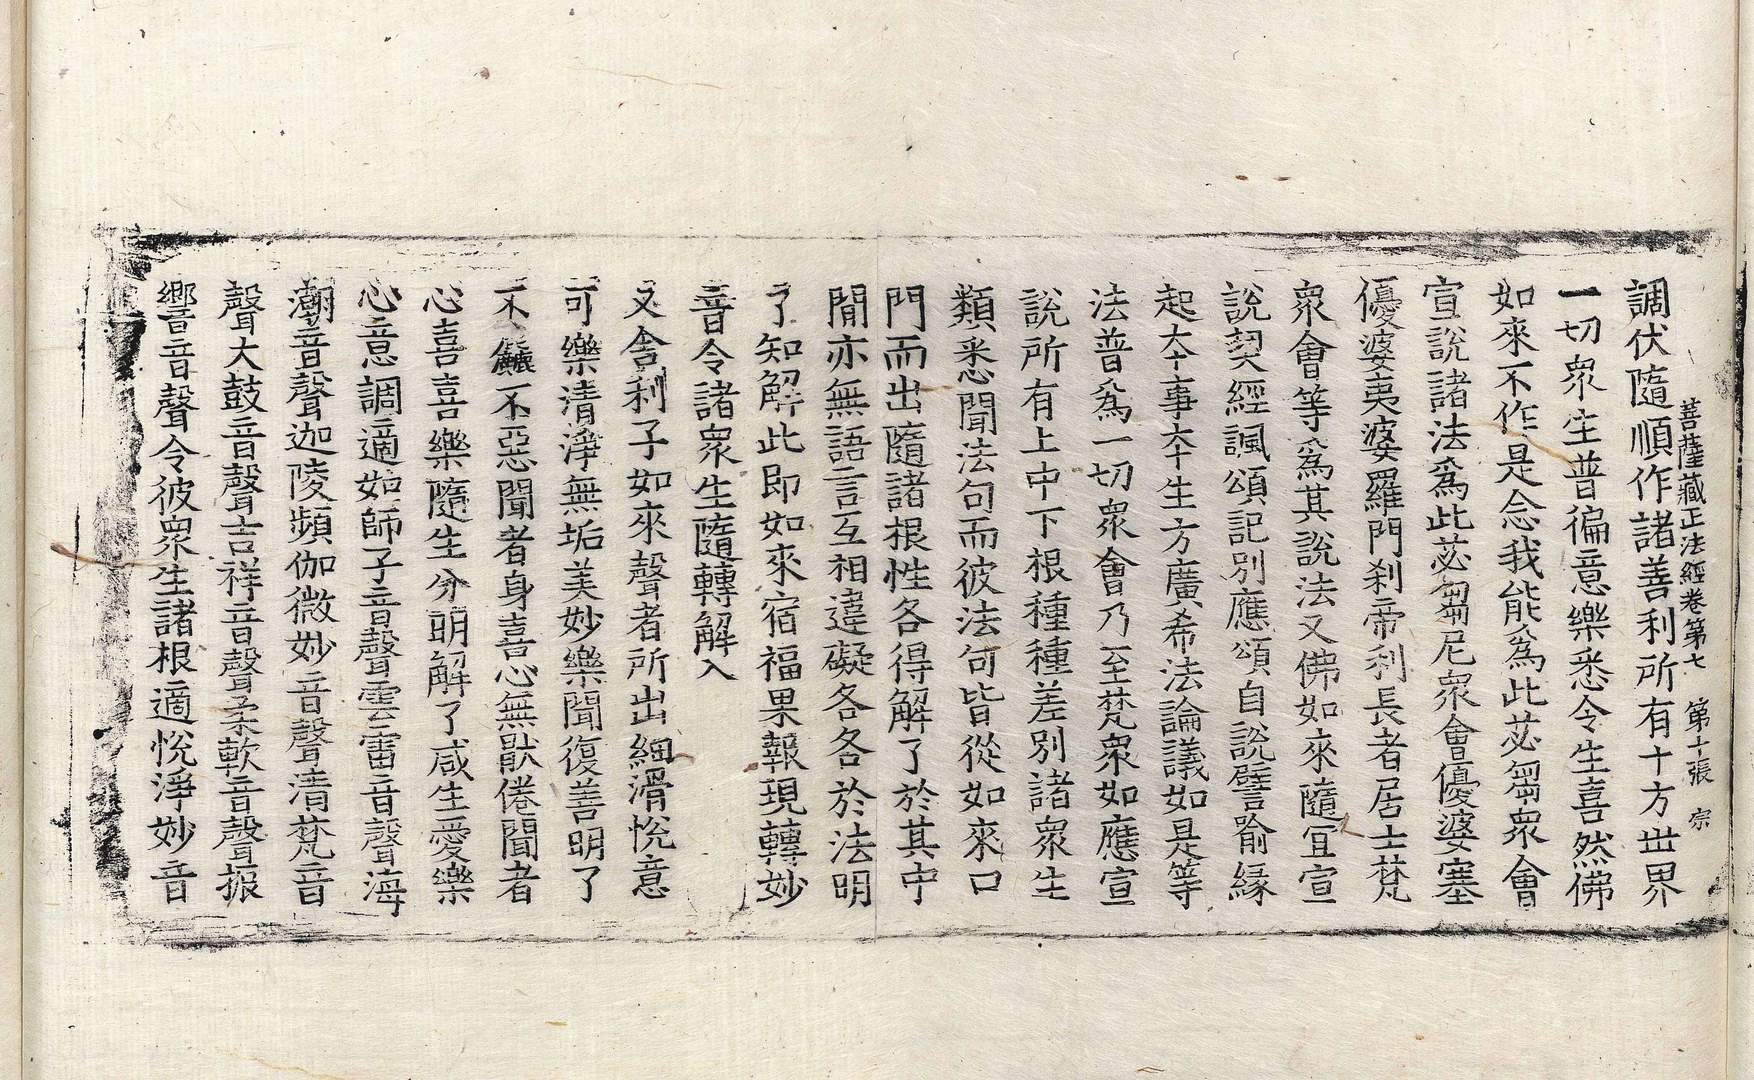 菩薩藏正法經卷第七　第十張　宗
調伏隨順作諸善利所有十方世界
一切眾生普徧意樂悉令生喜然佛
如來不作是念我能爲此苾芻眾會
宣說諸法爲此苾芻尼眾會優婆塞
優婆夷婆羅門刹帝利長者居士梵
眾會等爲其說法又佛如來隨宜宣
說契經諷頌記別應頌自說譬喻緣
起本事本生方廣希法論議如是等
法普爲一切眾會乃至梵眾如應宣
說所有上中下根種種差別諸眾生
類悉聞法句而彼法句皆從如來口
門而出隨諸根性各得解了於其中
間亦無語言互相違礙各各於法明
了知解此即如來宿福果報現轉妙
音令諸眾生隨轉解入
又舍利子如來聲者所出細滑悅意
可樂清淨無垢美妙樂聞復善明了
不麤不惡聞者身喜心無猒倦聞者
心喜喜樂隨生分明解了咸生愛樂
心意調適如師子音聲雲雷音聲海
潮音聲迦陵頻伽微妙音聲清梵音
聲大鼓音聲吉祥音聲柔軟音聲振
響音聲令彼眾生諸根適悅淨妙音